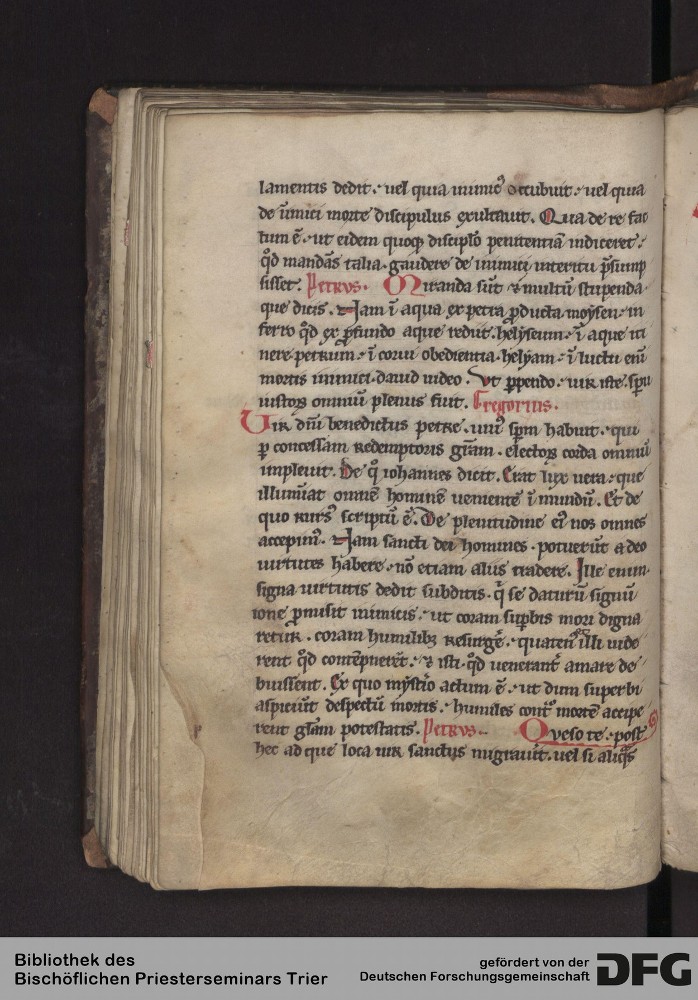 lamentis dedit. uel quia inimicꝰ occubuit. uel quia
de inimici morte discipulus exultauit. Qua de re fac
tum ē. ut eidem quoqꝫ discipło penitentiā indiceret.
qd̄ mandās talia. gaudere de inimici interitu p̄sump
sisset. Petrvs. Miranda sūt & multū stupenda
que dicis. Nam ī aqua ex petra ꝓducta moysen. in
ferro qd̄ ex ꝓfundo aque rediit. helyseum. ī aque iti
nere petrum. ī corui obedientia. helyam. ī luctu eni̅
mortis inimici. dauid uideo. Vt ꝑpendo. uir iste. spū
iustoꝝ omniū plenus fuit. Gregorius.
Vir dn̄i benedictus petre. uniꝰ spm̄ habuit. qui
ꝑ concessam redemptoris grām. electoꝝ corda omniū
impleuit. De q̊ iohannes dicit. Erat lux uera. que
illumīat omnē hominē uenientē ī mundū. Et de
quo rursꝰ scriptū ē. De plenitudine eiꝰ nos omnes
accepimꝰ. Nam sancti dei homines. potuerūt a deo
uirtutes habere. nō etiam aliis tradere. Ille enim
signa uirtutis dedit subditis. q̄ se daturū signū
ione ꝓmisit inimicis. ut coram supbis mori digna
retur. coram humilibꝫ resurgē. quatenꝰ & illi uide
rent qd̄ contēpnerēt. & isti. qd̄ uenerant̄ amare de
buissent. Ex quo mystio actum ē. ut dum superbi
aspiciūt despectū mortis. humiles contͣ mortē accipe
rent głam potestatis. Petrvs. Qveso te. post
hec ad que loca uir sanctꝰ migrauit. uel si aliqͣs
Bibliothek des
Bischöflichen Priesterseminars Trier
gefördert von der
Deutschen Forschungsgemeinschaft
DFG